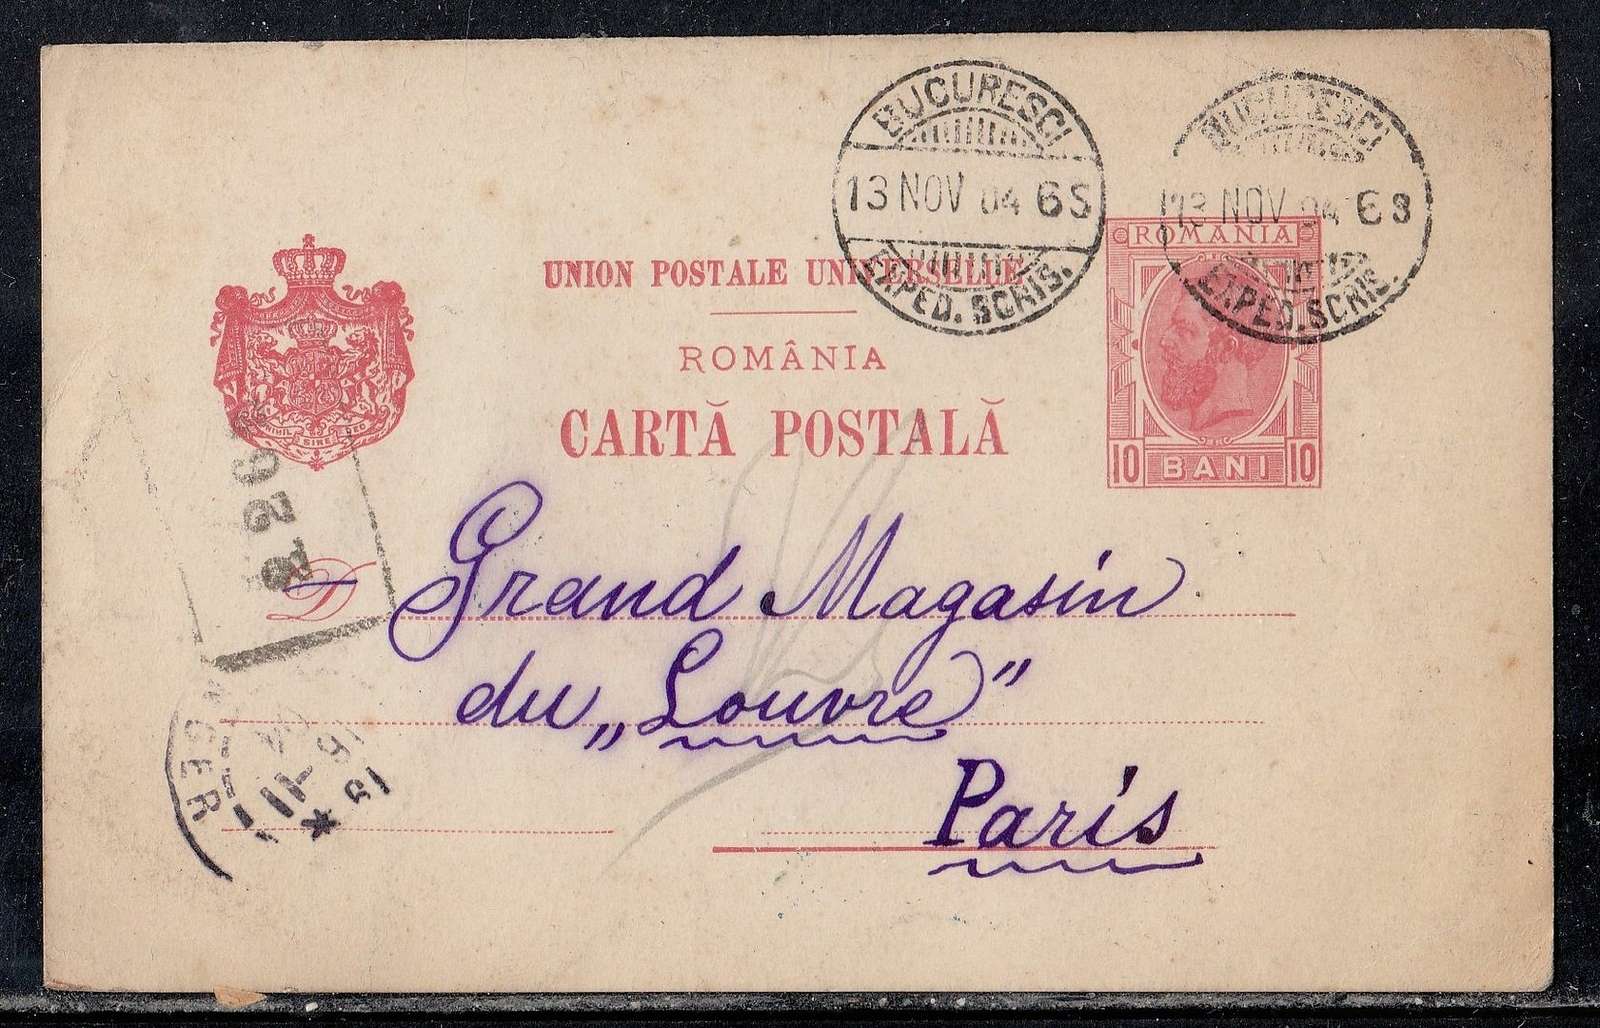 BUCURESCI
13 NOV 04 6S
EXPED. SCRIS.
BUCURESCI
13 NOV 04 6S
EXPED. SCRIS.
ROMANIA
10 BANI 10
UNION POSTALE UNIVERSELLE
ROMÂNIA
CARTĂ POSTALĂ
NIHIL SINE DEO
D
Grand Magasin
du „Louvre”
Paris